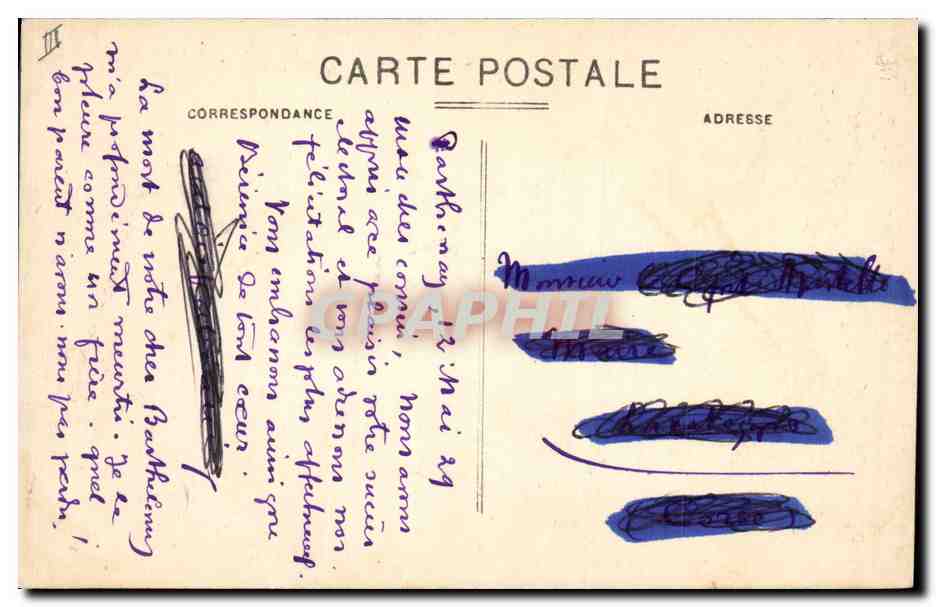 CARTE POSTALE
CORRESPONDANCE
ADRESSE
Parthenay 12 Mai 29
Mon cher cousin, Nous avons
appris avec plaisir votre succès
électoral et vous adressons nos
félicitations les plus
Vous embrassons ainsi que
Bérénice de tout cœur.
La mort de votre cher Barthélemy
m'a profondément meurtri. Je le
pleure comme un frère. quel
bon parent n'avons-nous pas perdu!
Monsieur
CPAPHIL
III